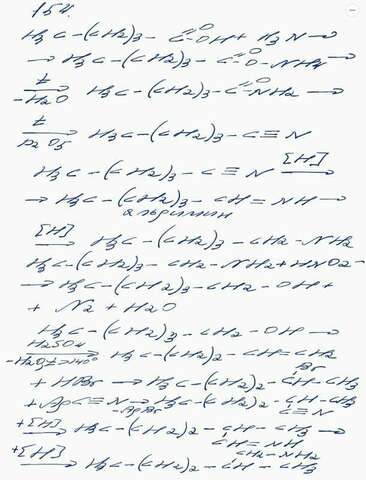 154.
H3C-(CH2)3-C(=O)-OH + H3N →
→ H3C-(CH2)3-C(=O)-O-NH4 →
t/-H2O → H3C-(CH2)3-C(=O)-NH2 →
t/P2O5 → H3C-(CH2)3-C≡N
H3C-(CH2)3-C≡N [H] →
→ H3C-(CH2)3-CH=NH →
альдимин
[H] → H3C-(CH2)3-CH2-NH2
H3C-(CH2)3-CH2-NH2+HNO2-
→ H3C-(CH2)3-CH2-OH+
+ N2 + H2O
H3C-(CH2)3-CH2-OH →
H2SO4/-H2O, t>140° → H3C-(CH2)2-CH=CH2
Br
+ HBr → H3C-(CH2)2-CH-CH3
+AgC≡N/-AgBr → H3C-(CH2)2-CH-CH3
C≡N
+[H] → H3C-(CH2)2-CH-CH3 →
CH=NH
CH2-NH2
+[H] → H3C-(CH2)2-CH-CH3